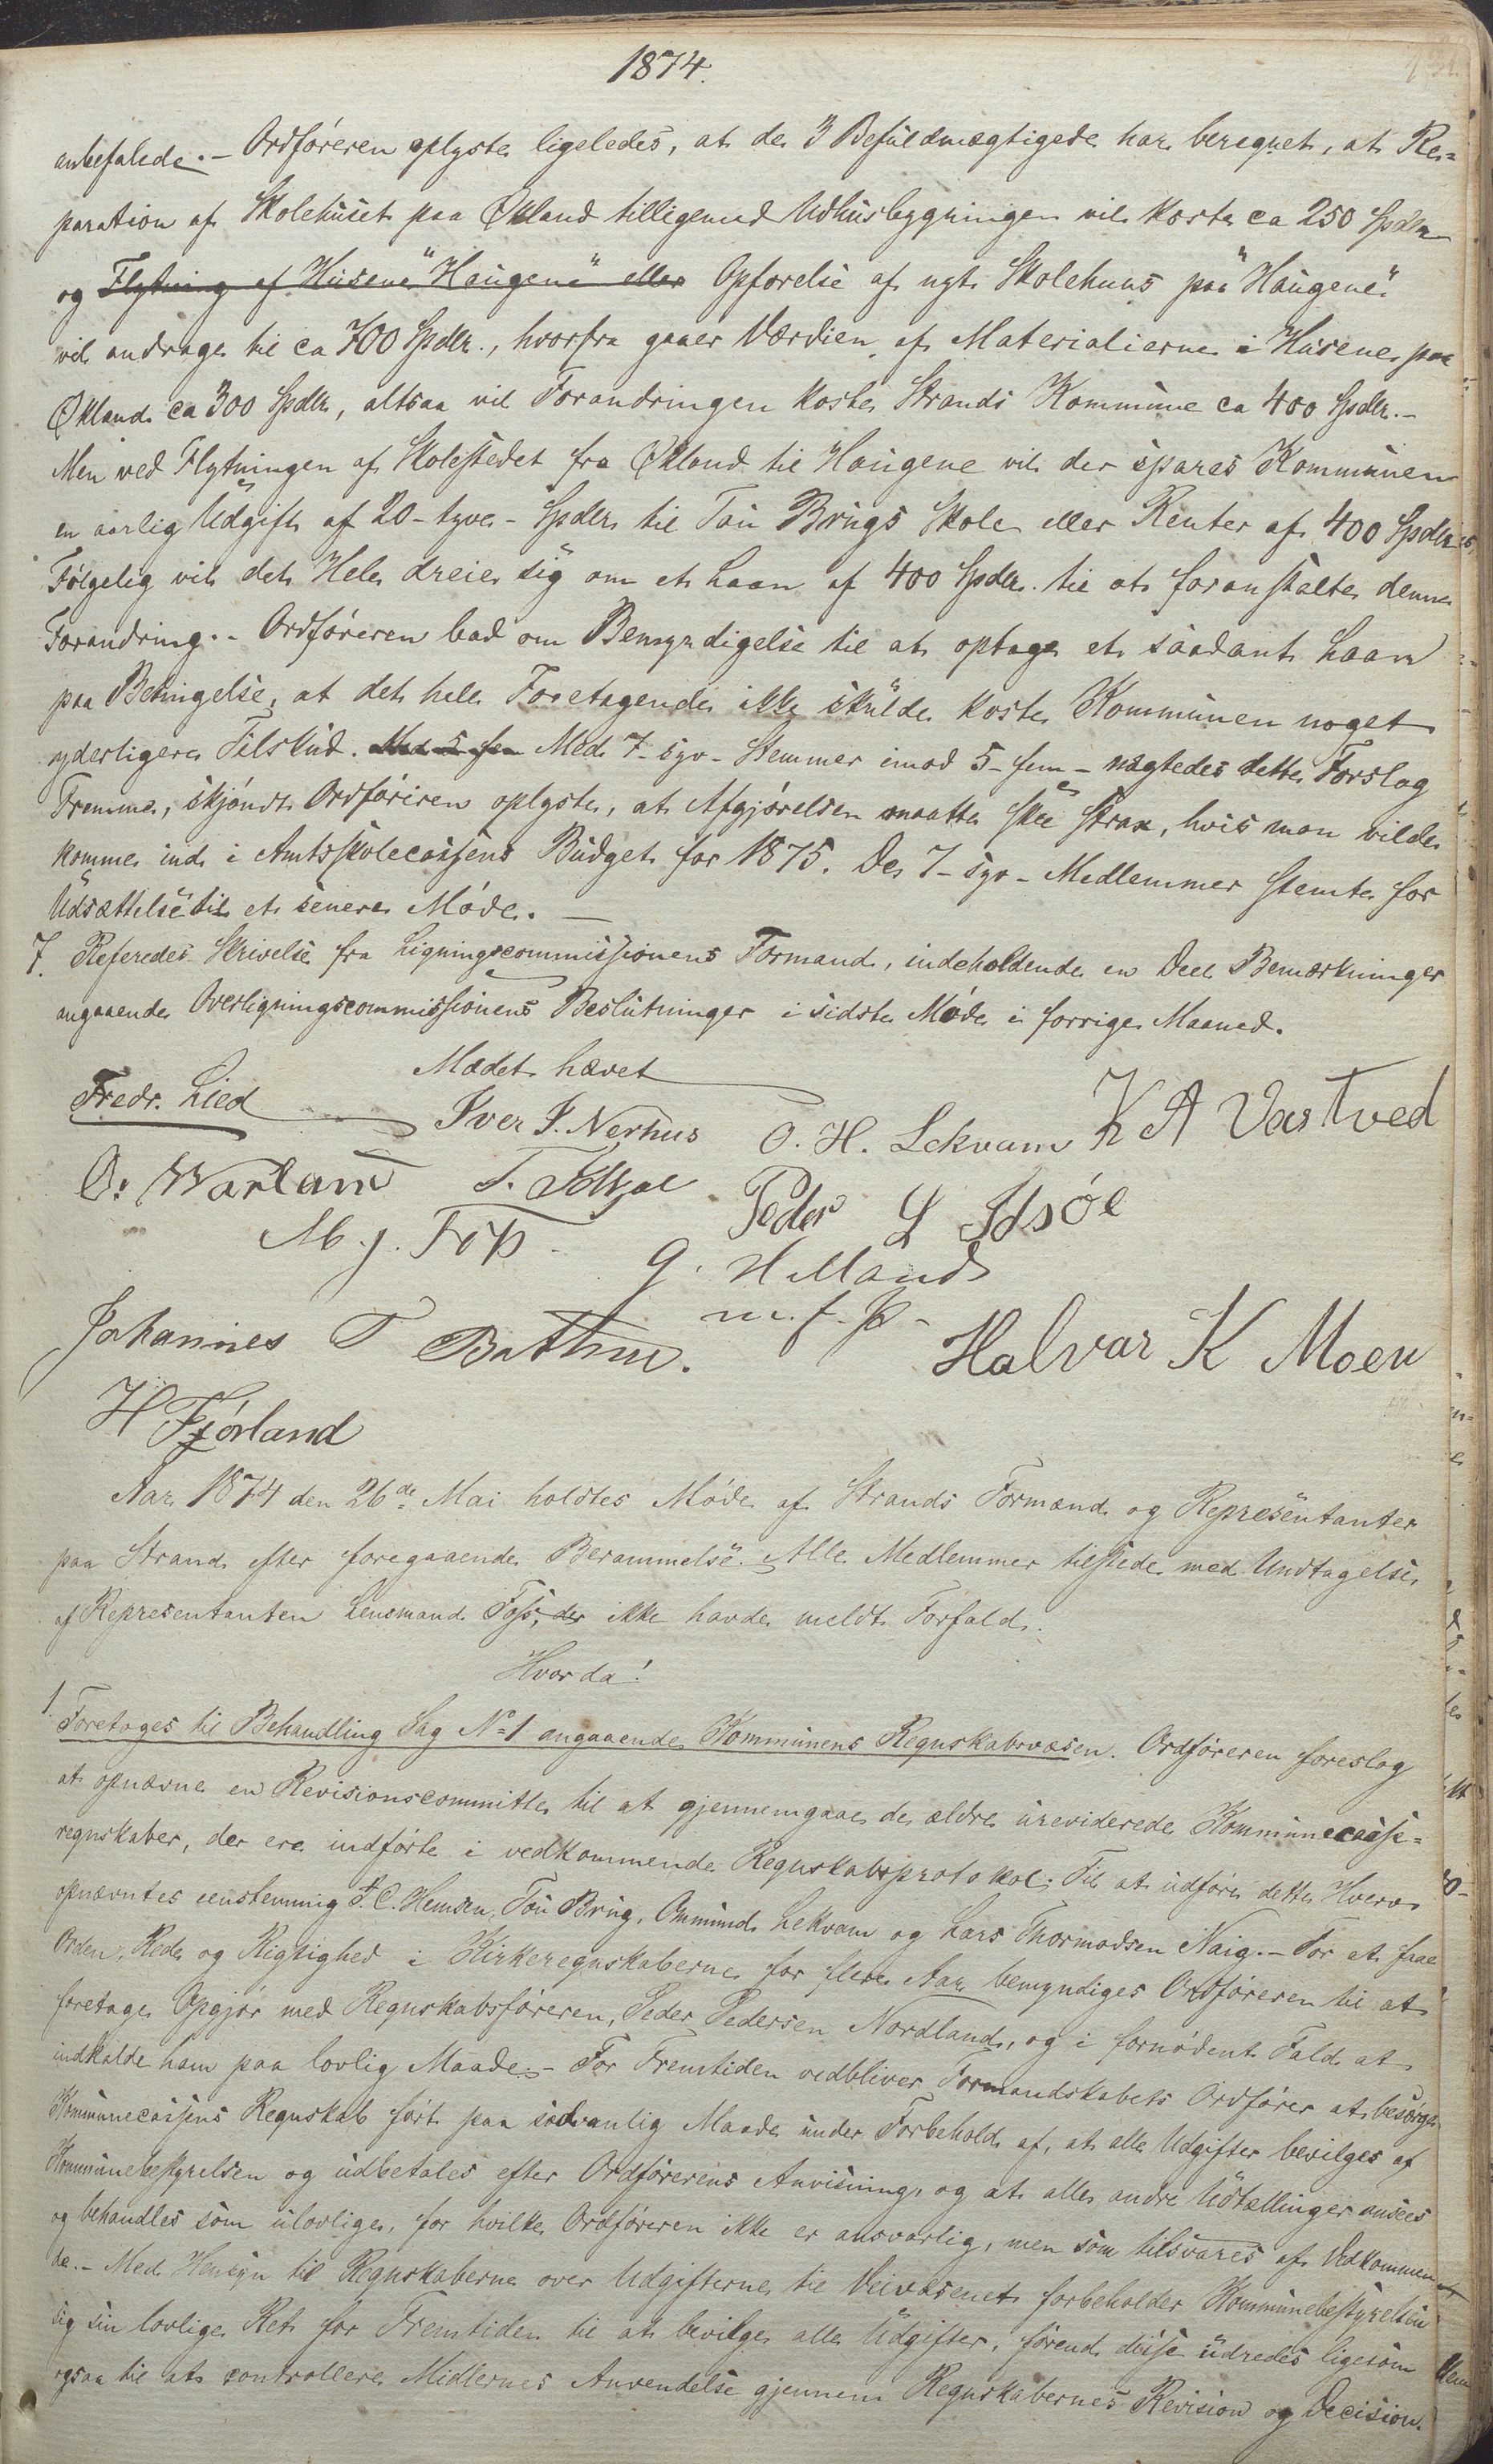 1874.
anbefalede. – Ordføreren oplyste ligeledes, at de 3 Befuldmægtigede har beregnet, at Re=
paration af Skolehuset paa Økland tilligemed Udhusbygningen vil koste ca 250 Spdlr
og Flytning af Husene "Haugene" eller Opførelse af nyt Skolehuus paa "Haugene"
vil andrage til ca 700 Spdlr., hvorfra gaaer Værdien af Materialierne i Husene paa
Økland ca 300 Spdlr, altsaa vil Forandringen koste Strands Kommune ca 400 Spdlr. –
Men ved Flytningen af Skolestedet fra Økland til Haugene vil der spares Kommunen
en aarlig Udgift af 20 – tyve – Spdlr til Tou Brugs Skole eller Renter af 400 Spdlr
Følgelig vil det Hele dreie sig om et Laan af 400 Spdlr. til at foranstalte denne
Forandring. – Ordføreren bad om Bemyndigelse til at optage et saadant Laan
paa Betingelse, at det hele Foretagende ikke skulde koste Kommunen noget
yderligere Tilskud. Med 5 fem Med 7 – syv – Stemmer imod 5 – fem – nægtedes dette Forslag
Fremme, skjøndt Ordføreren oplyste, at Afgjørelsen maatte skee strax, hvis man vilde
komme ind i Amtsskolecassens Budget for 1875. De 7 – syv – Medlemmer stemte for
Udsættelse til et senere Møde. –
7. Referedes Skrivelse fra Ligningscommissionens Formand, indeholdende en Deel Bemærkninger
angaaende Overligningscommissionens Beslutninger i sidste Møde i forrige Maaned.
Mødet hævet
Fredr. Lied Iver I. Nerhus O. H. Lekvam K A Vastved
O. Warland T. Peder L Idsøe
M. J. Foss. G. Helland
m. f. P.
Johannes T Halvar K Moen
H Fjørland
Aar 1874 den 26de Mai holdtes Møde af Strands Formænd og Repræsentanter
paa Strand efter foregaaende Berammelse. Alle Medlemmer tilstede med Undtagelse
af Repræsentanten Lensmand Foss, der ikke havde meldt Forfald.
Hvor da!
1. Foretoges til Behandling Sag No 1 angaaende Kommunens Regnskabsvæsen. Ordføreren foreslog
at opnævne en Revisionscommitte til at gjennemgaae de ældre ureviderede Kommunecasse=
regnskaber, der ere indførte i vedkommende Regnskabsprotokol. Til at udføre dette Hverv
opnævntes eenstemmig F. C. Hemsen, Tou Brug, Ommund Lekvam og Lars Thormodsen Naig. – For at faae
Orden, Rede og Rigtighed i Kirkeregnskaberne for flere Aar bemyndiges Ordføreren til at
foretage Opgjør med Regnskabsføreren, Peder Pedersen Nordland, og i fornødent Fald at
indkalde ham paa lovlig Maade. – For Fremtiden vedbliver Formandskabets Ordfører at besørge
Kommunecassens Regnskab ført paa sædvanlig Maade under Forbehold af, at alle Udgifter bevilges af
Kommunebestyrelsen og udbetales efter Ordførerens Anvisning, og at alle andre Udtællinger ansees
og behandles som ulovlige, for hvilke Ordføreren ikke er ansvarlig, men som tilsvares af Vedkommen=
de. – Med Hensyn til Regnskaberne over Udgifterne til Veivæsenet forbeholder Kommunebestyrelsen
sig sin lovlige Ret for Fremtiden til at bevilge alle Udgifter, førend disse udredes ligesom
ogsaa til at controllere Midlernes Anvendelse gjennem Regnskabernes Revision og Decision.